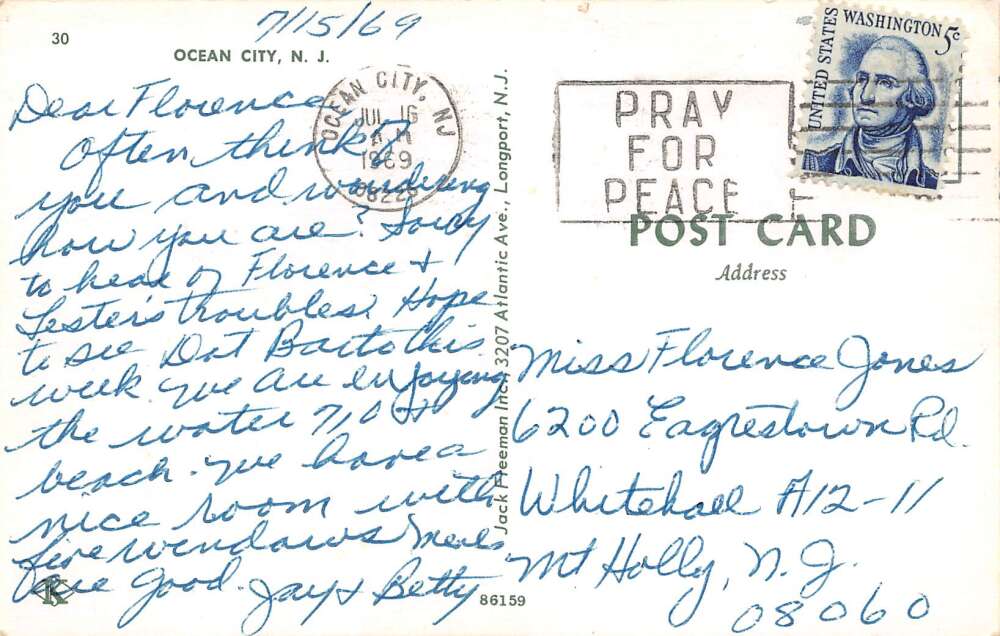 7/15/69
30
OCEAN CITY, N. J.
Dear Florence
Often think of
you and wondering
how you are? Sorry
to hear of Florence +
Lester's troubles. Hope
to see Dot Barto this
week. We are enjoying
the water 71° +
beach. We have a
nice room with
five windows Meals
are good. Jay + Betty
K
86159
Jack Freeman Inc., 3207 Atlantic Ave., Longport, N.J.
OCEAN CITY, NJ
JUL 16
1969
PRAY
FOR
PEACE
UNITED STATES
WASHINGTON 5c
POST CARD
Address
Miss Florence Jones
6200 Eagrestown Rd.
Whitehall A12-11
Mt Holly, N. J.
08060